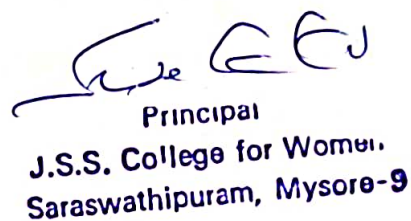 Principal
J.S.S. College for Women,
Saraswathipuram, Mysore-9